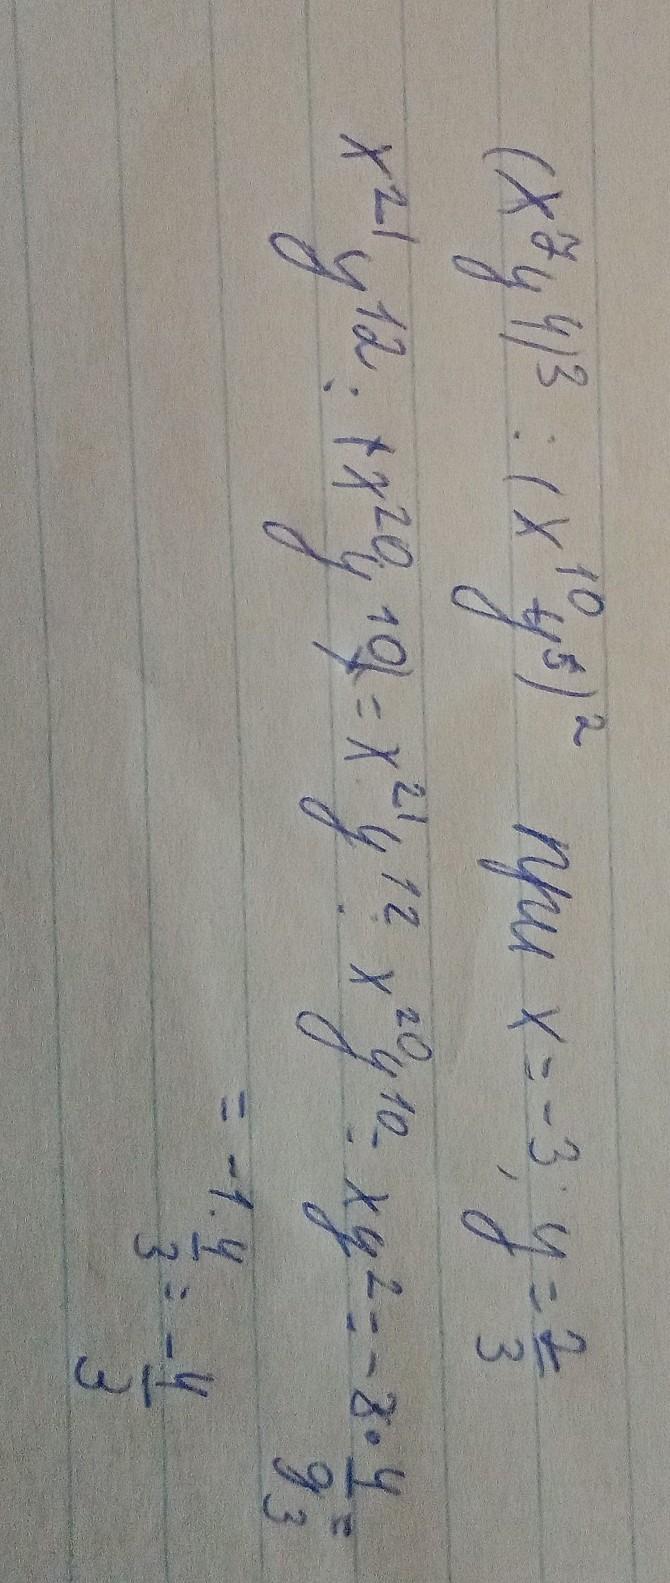 (x⁷y⁴)³ : (x¹⁰y⁵)² при x = -3; y = 2/3
x²¹y¹² : (x²⁰y¹⁰) = x²¹y¹² : x²⁰y¹⁰ = xy² = -3 · 4/9 3 =
= -1 · 4/3 = -4/3